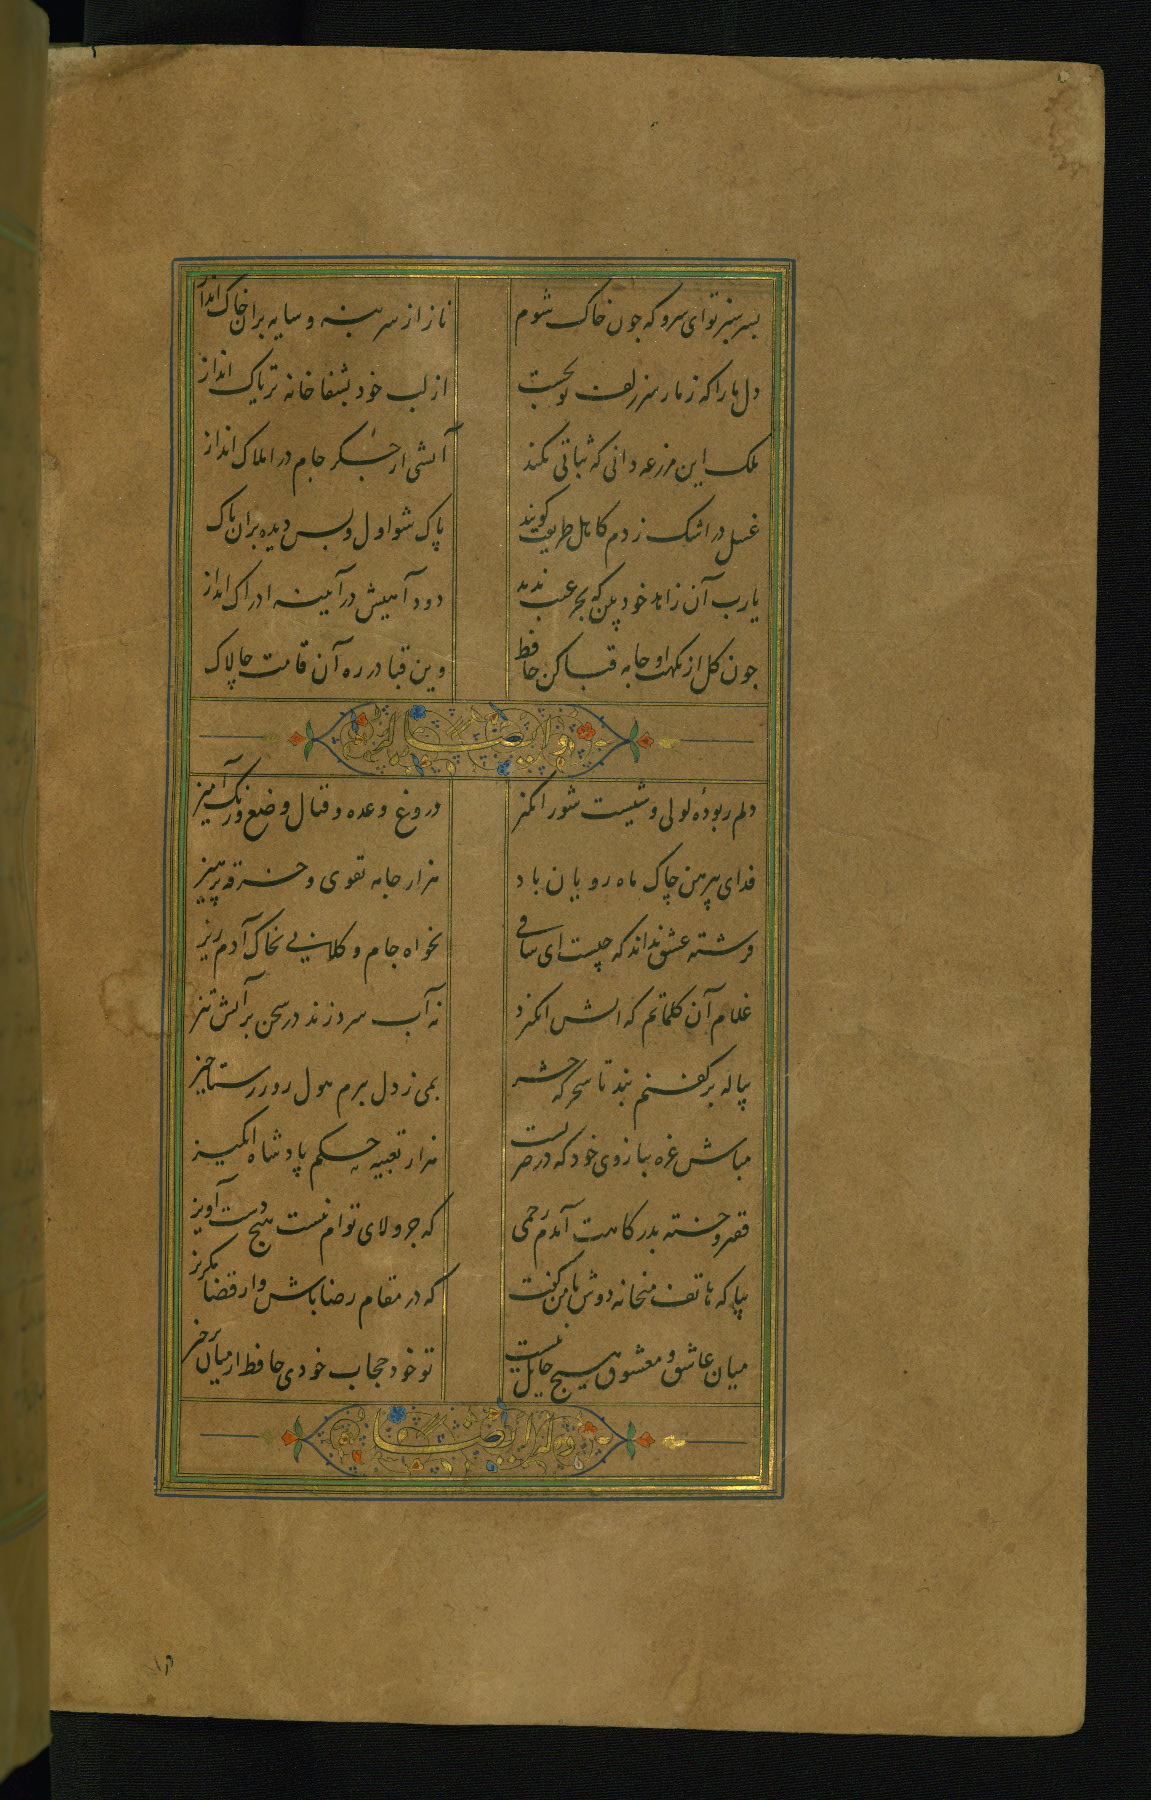 بسر سبز تو ای سرو که چون خاک شوم ناز از سر بنه و سایه برین خاک انداز
دل ما را که ز مار سر زلف تو بخست از لب خود بشفا خانه تریاک انداز
ملک این مزرعه دانی که ثباتی نکند آتشی از جگر جام در املاک انداز
غسل در اشک زدم کاهل طریقت گویند پاک شو اول و پس دیده بران پاک
یا رب آن زاهد خود بین که بجز عیب ندید دود آهیش در آیینه ادراک انداز
چون گل از نکهت او جامه قبا کن حافظ وین قبا در ره آن قامت چالاک
وله ایضا
دلم ربوده لولی وشیست شور انگیز دروغ وعده و قتال وضع و رنگ آمیز
فدای پیرهن چاک ماه رویان باد هزار جامه تقوی و خرقه پرهیز
فرشته عشق نداند که چیست ای ساقی بخواه جام و کلابی بخاک آدم ریز
غلام آن کلماتم که آتش انگیزد نه آب سرد زند در سخن بر آتش تیز
پیاله بر کفنم بند تا سحرگه حشر بمی ز دل ببرم هول روز رستاخیز
مباش غره ببازوی خود که در خبر است هزار تعبیه به حکم پادشاه انگیز
فقیر و خسته بدرگاهت آمدم رحمی که جز ولای توام نیست هیچ دست آویز
بیا که هاتف میخانه دوش با من گفت که در مقام رضا باش و از قضا مگریز
میان عاشق و معشوق هیچ حایل نیست تو خود حجاب خودی حافظ از میان برخیز
وله ایضا